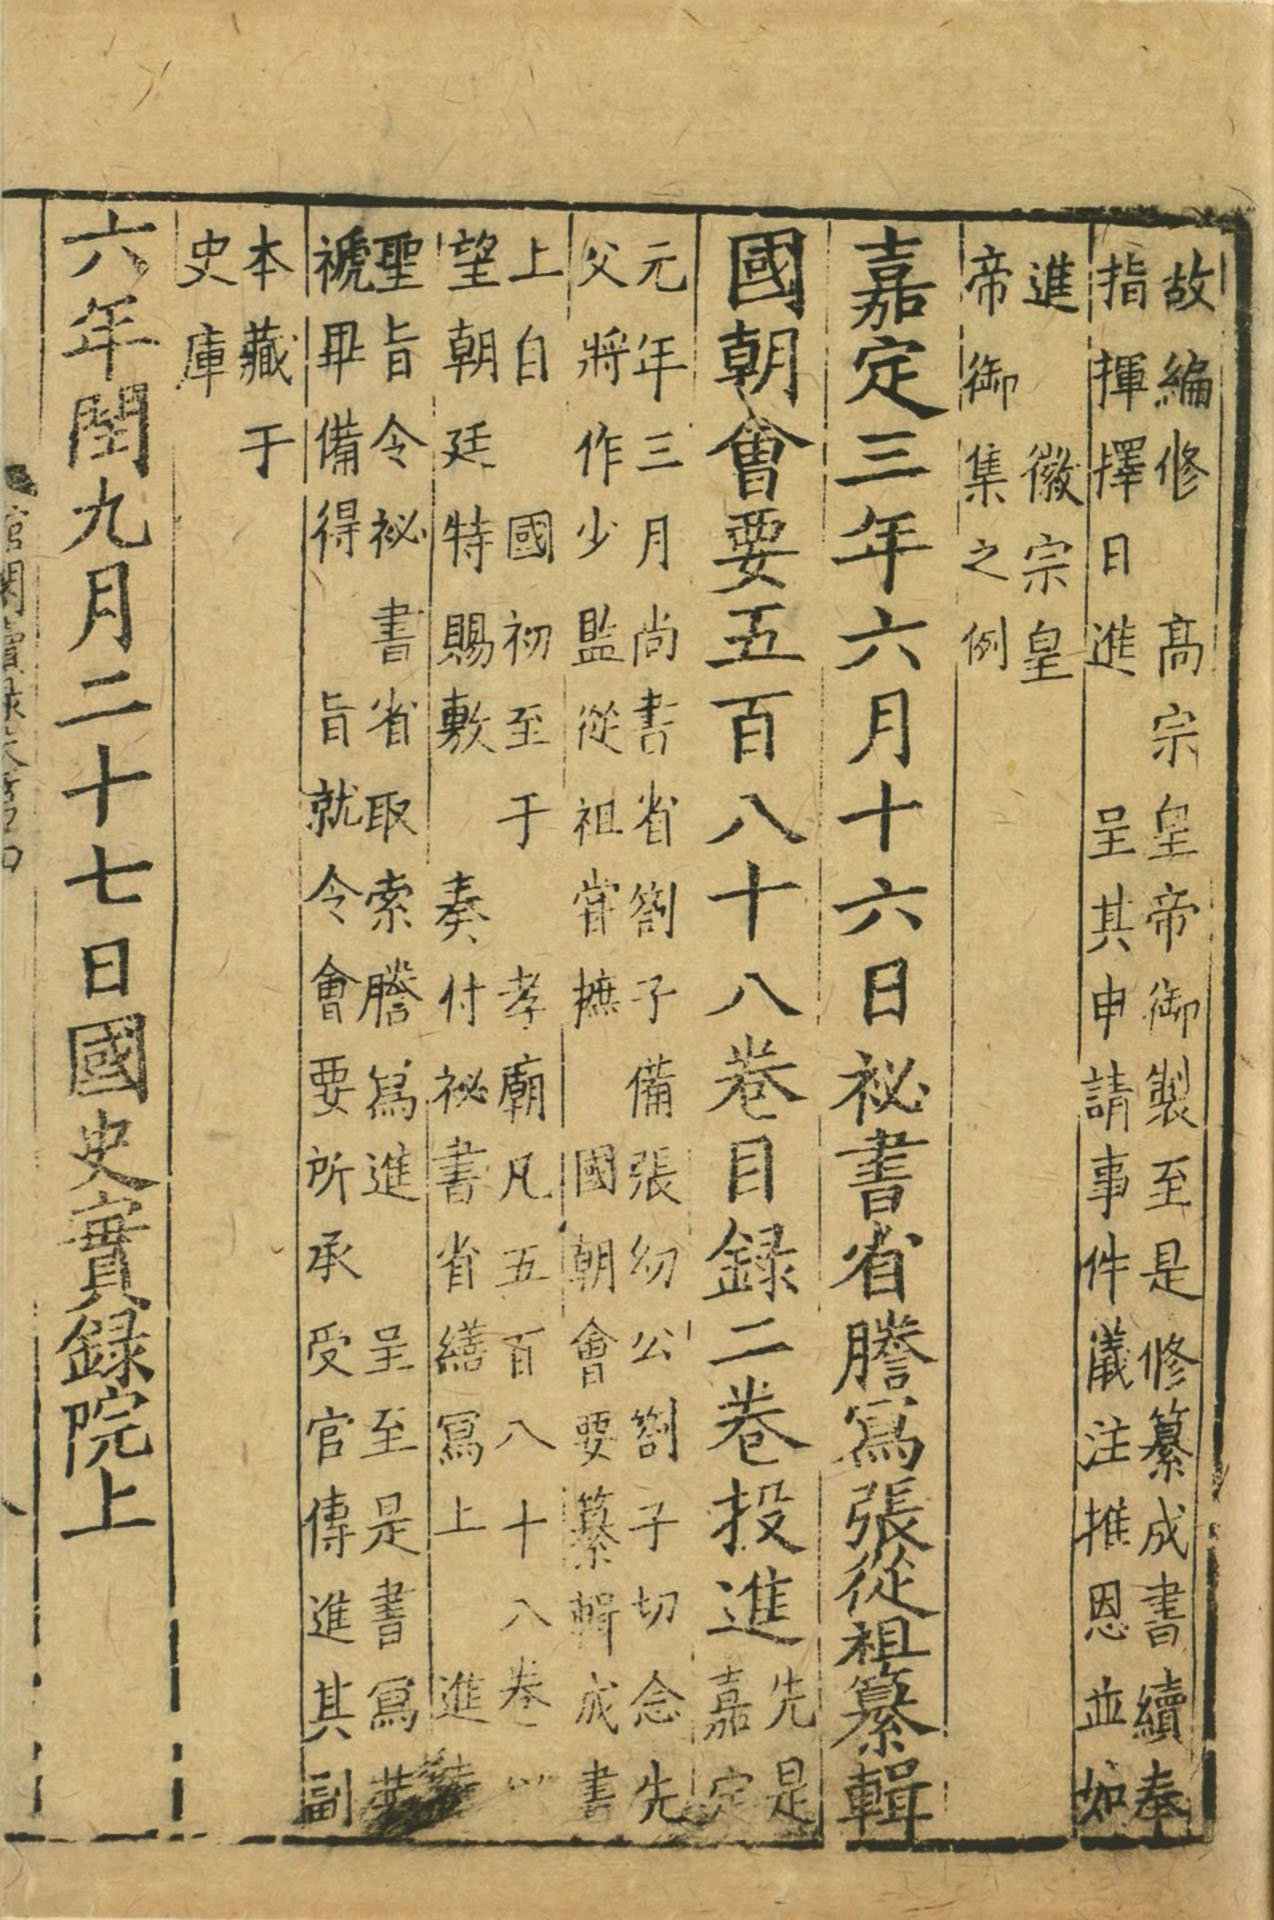 故編修　高宗皇帝御製至是修纂成書續奉
指揮擇日進　呈其申請事件儀注推恩並如
進　徽宗皇
帝御集之例
嘉定三年六月十六日祕書省謄寫張從祖纂輯
國朝會要五百八十八卷目録二卷投進
先是
嘉定
元年三月尚書省劄子備張幼公劄子切念先
父將作少監從祖嘗摭　國朝會要纂輯成書
上自　國初至于　孝廟凡五百八十八卷
望朝廷特賜敷　奏付祕書省繕寫上　進
聖旨令祕書省取索謄寫進　呈至是書寫裝
褫畢備得　旨就令會要所承受官傳進其副
本藏于
史庫
六年閏九月二十七日國史實録院上
館閣續録